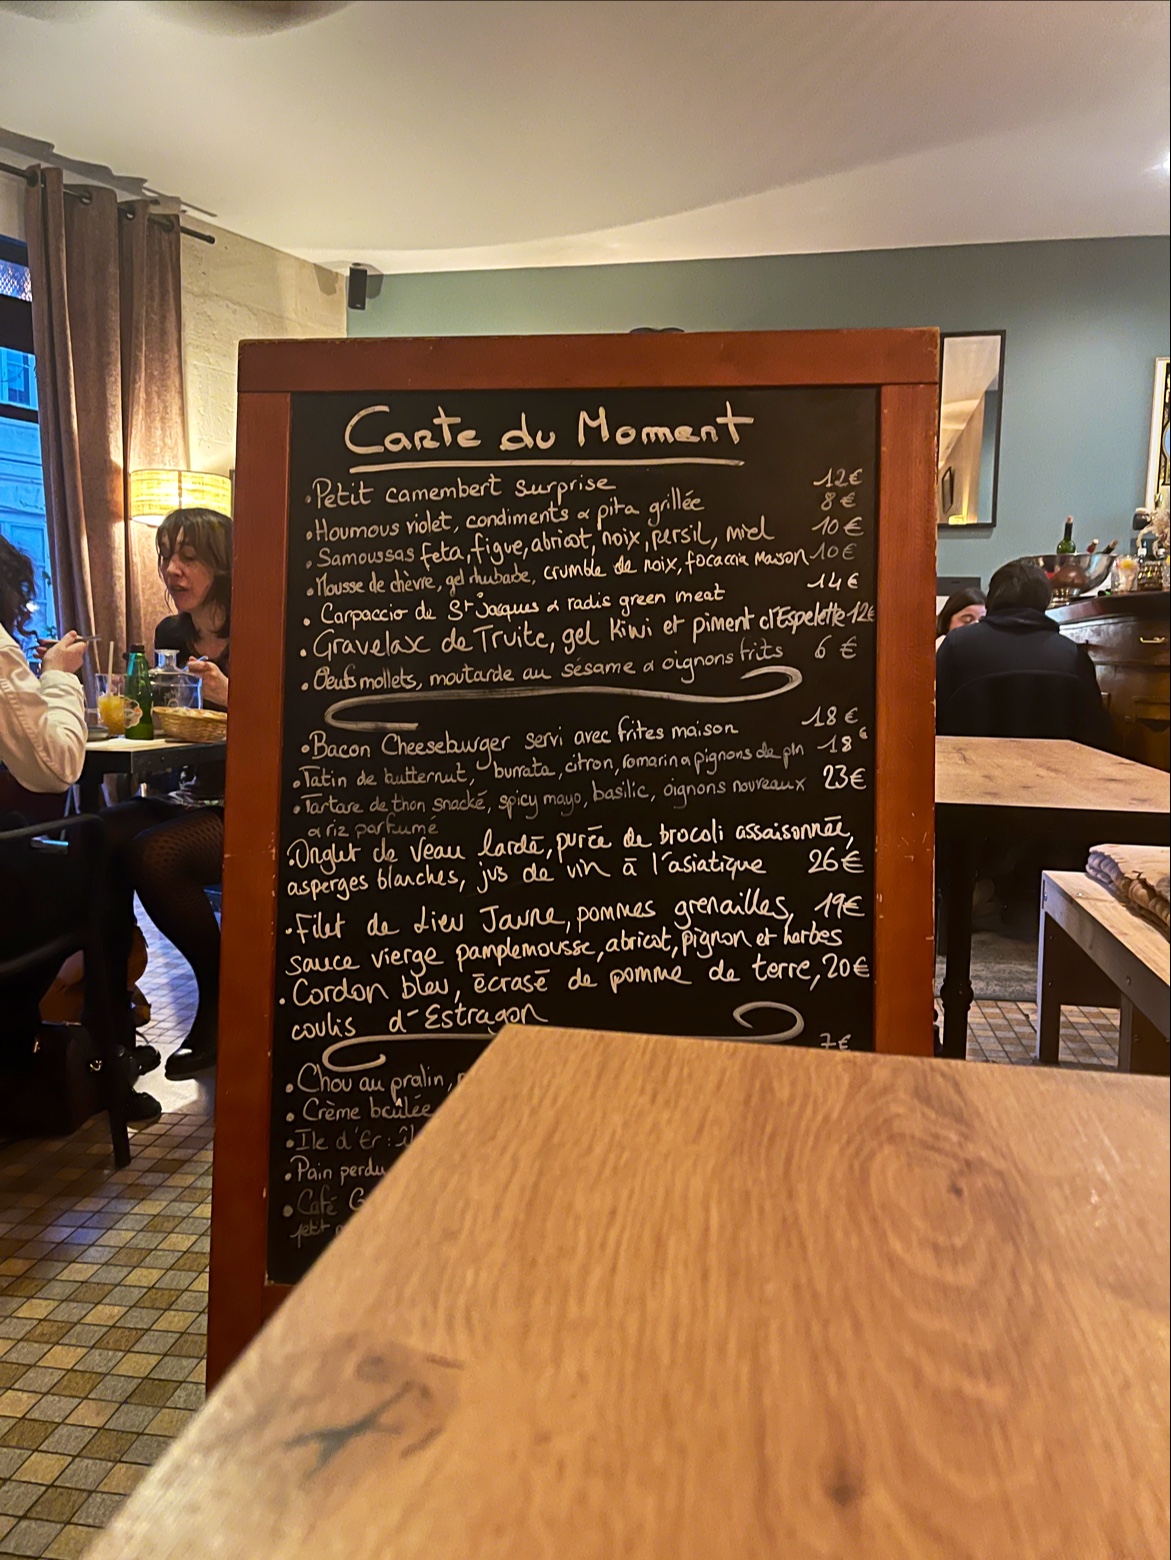 Carte du Moment
• Petit camembert surprise 12€
• Houmous violet, condiments & pita grillée 8€
• Samoussas feta, figue, abricot, noix, persil, miel 10€
• Mousse de chèvre, gel rhubarbe, crumble de noix, focaccia maison 10€
• Carpaccio de St Jacques & radis green meat 14€
• Gravelax de Truite, gel kiwi et piment d'Espelette 12€
• Oeufs mollets, moutarde au sésame & oignons frits 6€
• Bacon Cheeseburger servi avec frites maison 18€
• Tatin de butternut, burrata, citron, romarin & pignons de pin 18€
• Tartare de thon snacké, spicy mayo, basilic, oignons nouveaux 23€
& riz parfumé
• Onglet de Veau lardé, purée de brocoli assaisonnée,
asperges blanches, jus de vin à l'asiatique 26€
• Filet de Lieu Jaune, pommes grenailles, 19€
sauce vierge pamplemousse, abricot, pignon et herbes
• Cordon bleu, écrasé de pomme de terre, 20€
coulis d'Estragon
7€
• Chou au pralin,
• Crème brûlée
• Ile d'Er : îl
• Pain perdu
• Café G
petit